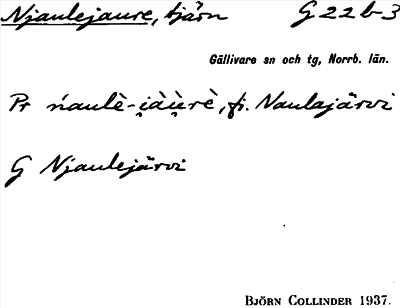 Njaulejaure, tjärn G 22 b-3
Gällivare sn och tg, Norrb. län.
Pr ńaulè-i̯àu̯rè, fi. Naulajärvi
G Njaulejärvi
BJÖRN COLLINDER 1937.